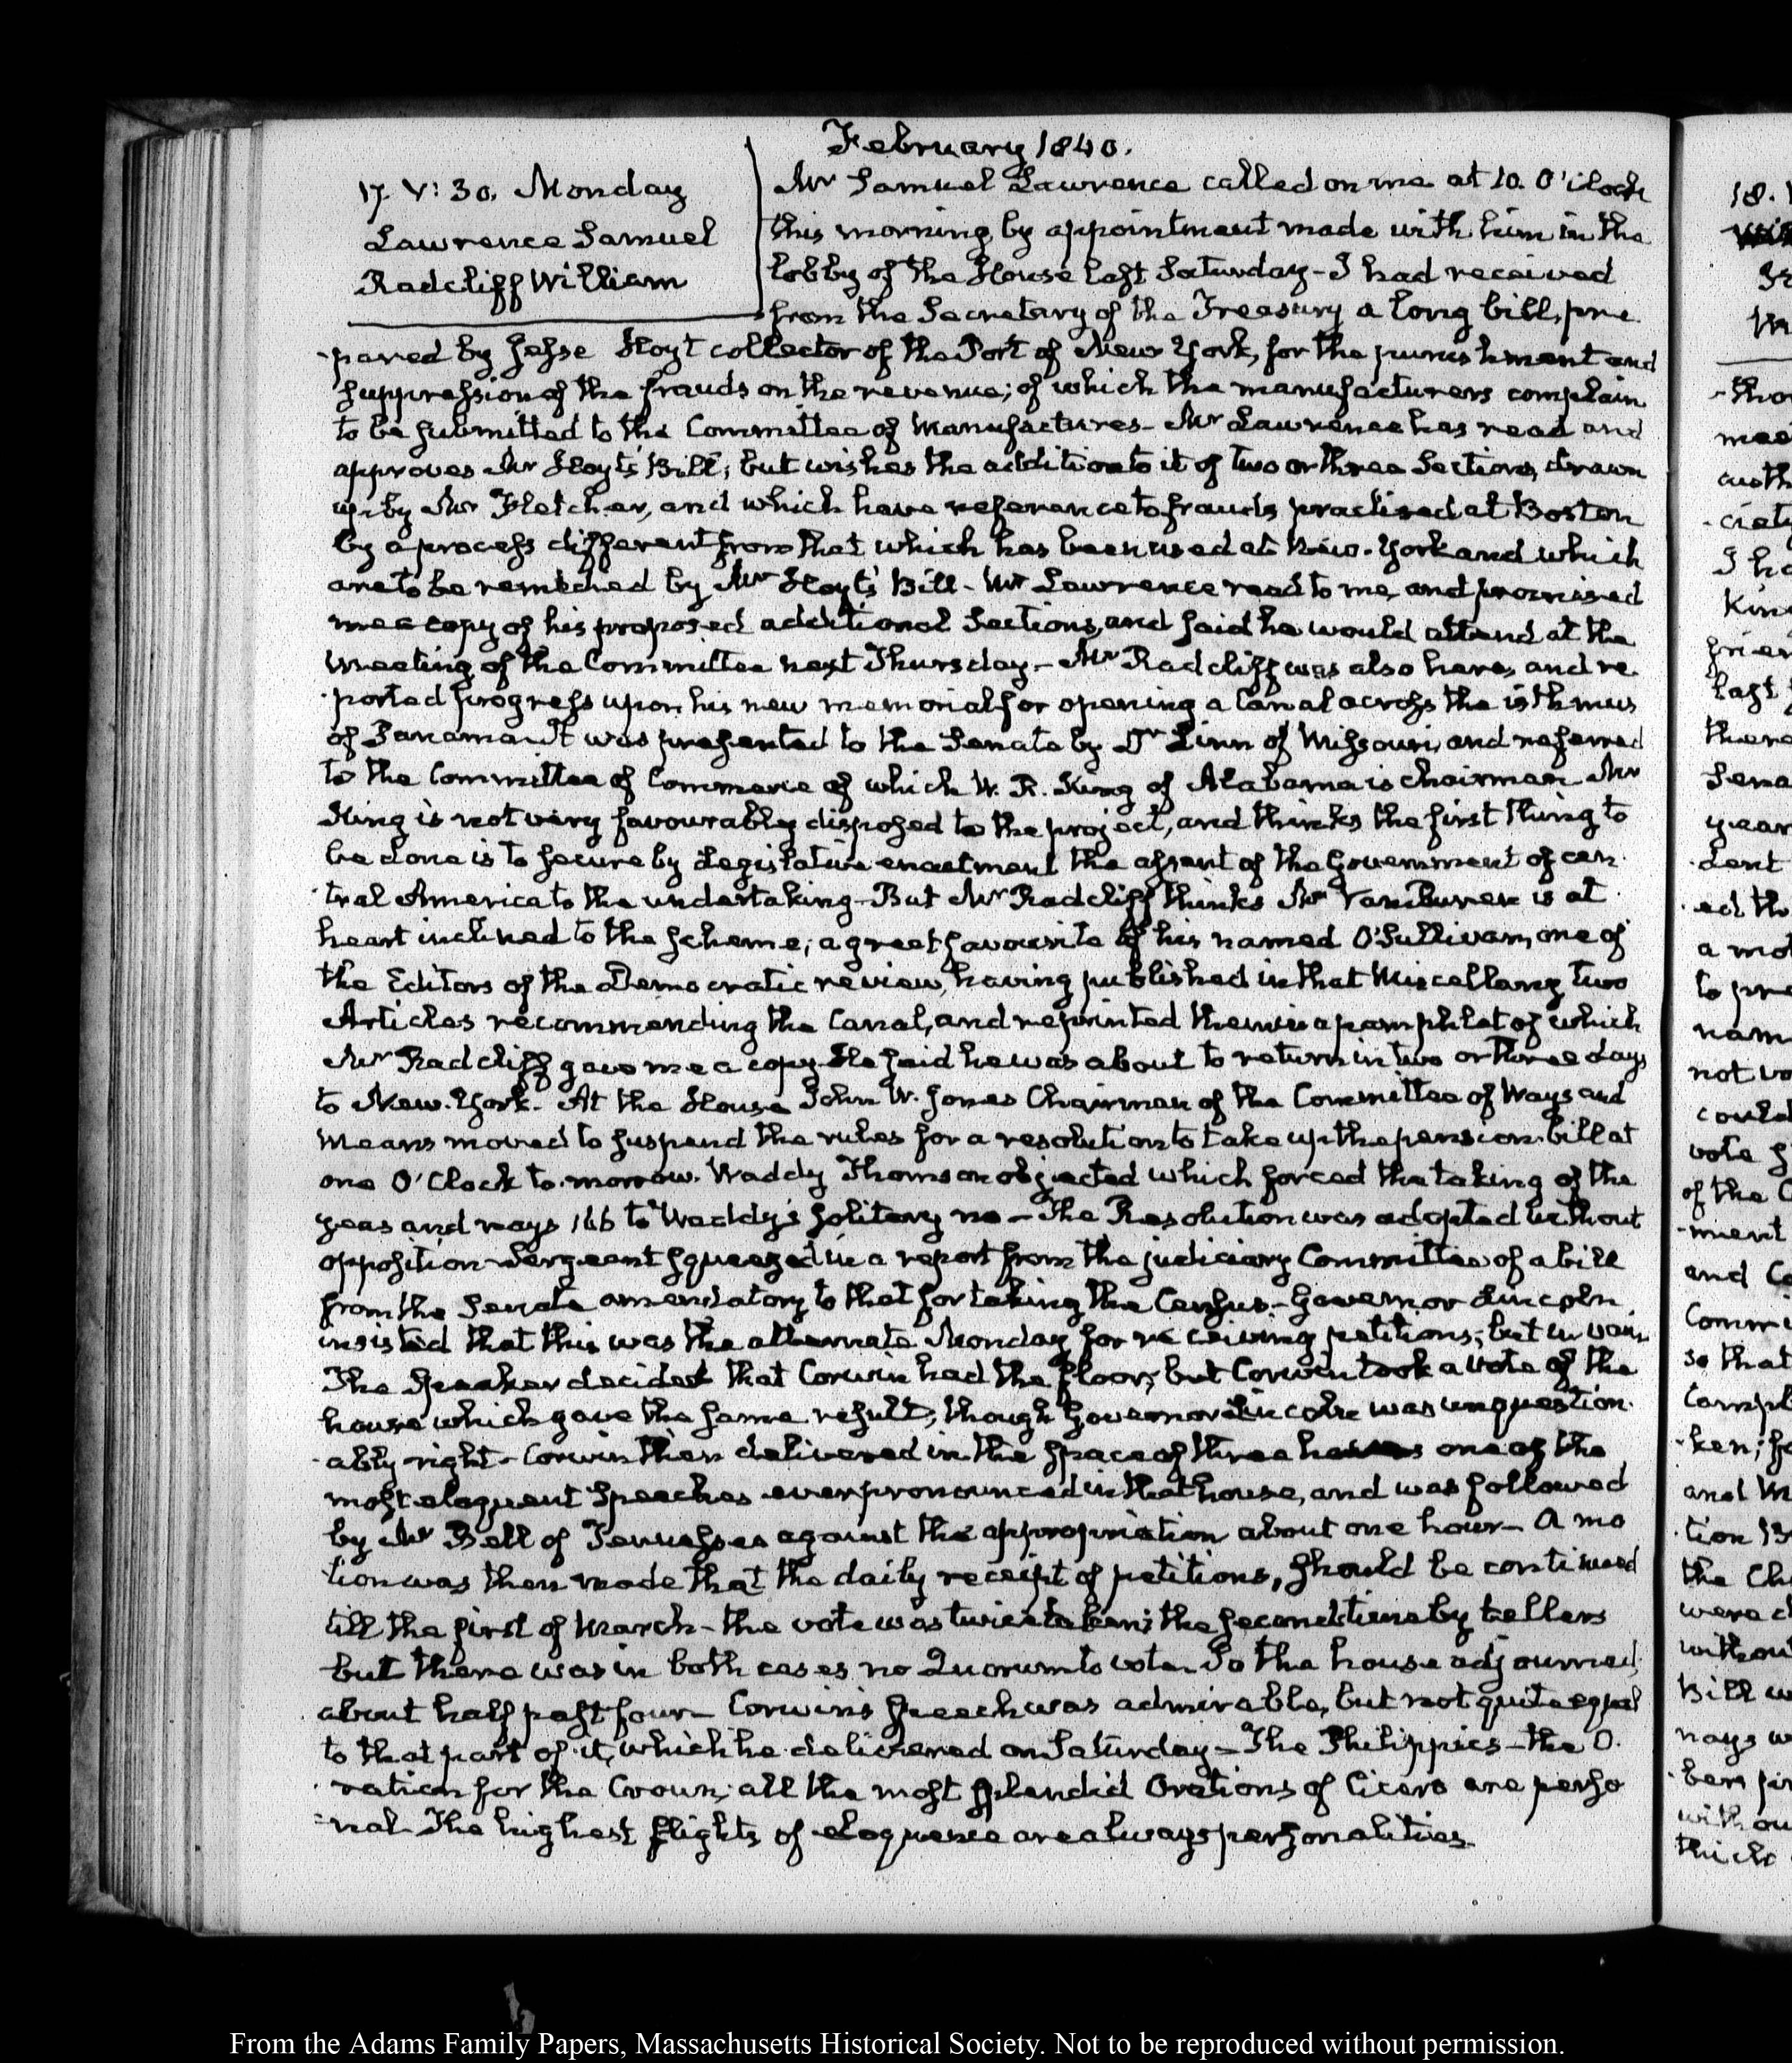 February 1840.
17. V: 30. Monday
Lawrence Samuel
Radcliff William
Mr Samuel Lawrence called on me at 10. O'Clock
this morning by appointment made with him in the
lobby of the House last Saturday - I had received
from the Secretary of the Treasury a long bill, pre
-pared by Jesse Hoyt collector of the Port of New York, for the punishment and
suppression of the frauds on the revenue; of which the manufacturers complain
to be submitted to the Committee of Manufactures - Mr Lawrence has read and
approves Mr Hoyt's Bill; but wishes the addition to it of two or three Sections, drawn
up by Mr Fletcher, and which have reference to frauds practised at Boston
by a process different from that which has been used at New-York and which
are to be remedied by Mr Hoyt's Bill - Mr Lawrence read to me, and promised
me a copy of his proposed additional Sections, and said he would attend at the
meeting of the Committee next Thursday - Mr Radcliff was also here, and re
-ported progress upon his new memorial for opening a Canal across the isthmus
of Panama - It was presented to the Senate by Dr Linn of Missouri, and referred
to the Committee of Commerce of which W. R. King of Alabama is chairman Mr
King is not very favourably disposed to the project, and thinks the first thing to
be done is to secure by Legislative enactment the assent of the Government of cen
-tral America to the undertaking - But Mr Radcliff thinks Mr Van Buren is at
heart inclined to the scheme; a great favourite of his named O'Sullivan, one of
the Editors of the Democratic review, having published in that Miscellany two
Articles recommending the Canal, and reprinted them in a pamphlet of which
Mr Radcliff gave me a copy. He said he was about to return in two or three days
to New-York - At the House John W. Jones Chairman of the Committee of Ways and
Means moved to suspend the rules for a resolution to take up the pension bill at
one O'Clock to-morrow. Waddy Thomson objected which forced the taking of the
yeas and nays 166 to Waddy's solitary no - The Resolution was adopted without
opposition - Sergeant squeezed in a report from the judiciary Committee of a bill
from the Senate amendatory to that for taking the Census - Governor Lincoln
insisted that this was the alternate Monday for receiving petitions; but in vain
The Speaker decided that Corwin had the floor; but Corwin took a vote of the
house which gave the same result; though Governor Lincoln was unquestion
-ably right - Corwin then delivered in the space of three hours one of the
most eloquent Speeches ever pronounced in that house, and was followed
by Mr Bell of Tennessee against the appropriation about one hour - A mo
tion was then made that the daily receipt of petitions, should be continued
till the first of March - the vote was twice taken; the second time by tellers
but there was in both cases no Quorum to vote. So the house adjourned,
about half past four - Corwin's speech was admirable, but not quite equal
to that part of it, which he delivered on Saturday - The Philippics - the O.
-ration for the Crown; all the most splendid Orations of Cicero are perso
-nal - The highest flights of eloquence are always personalities.
18.
From the Adams Family Papers, Massachusetts Historical Society. Not to be reproduced without permission.